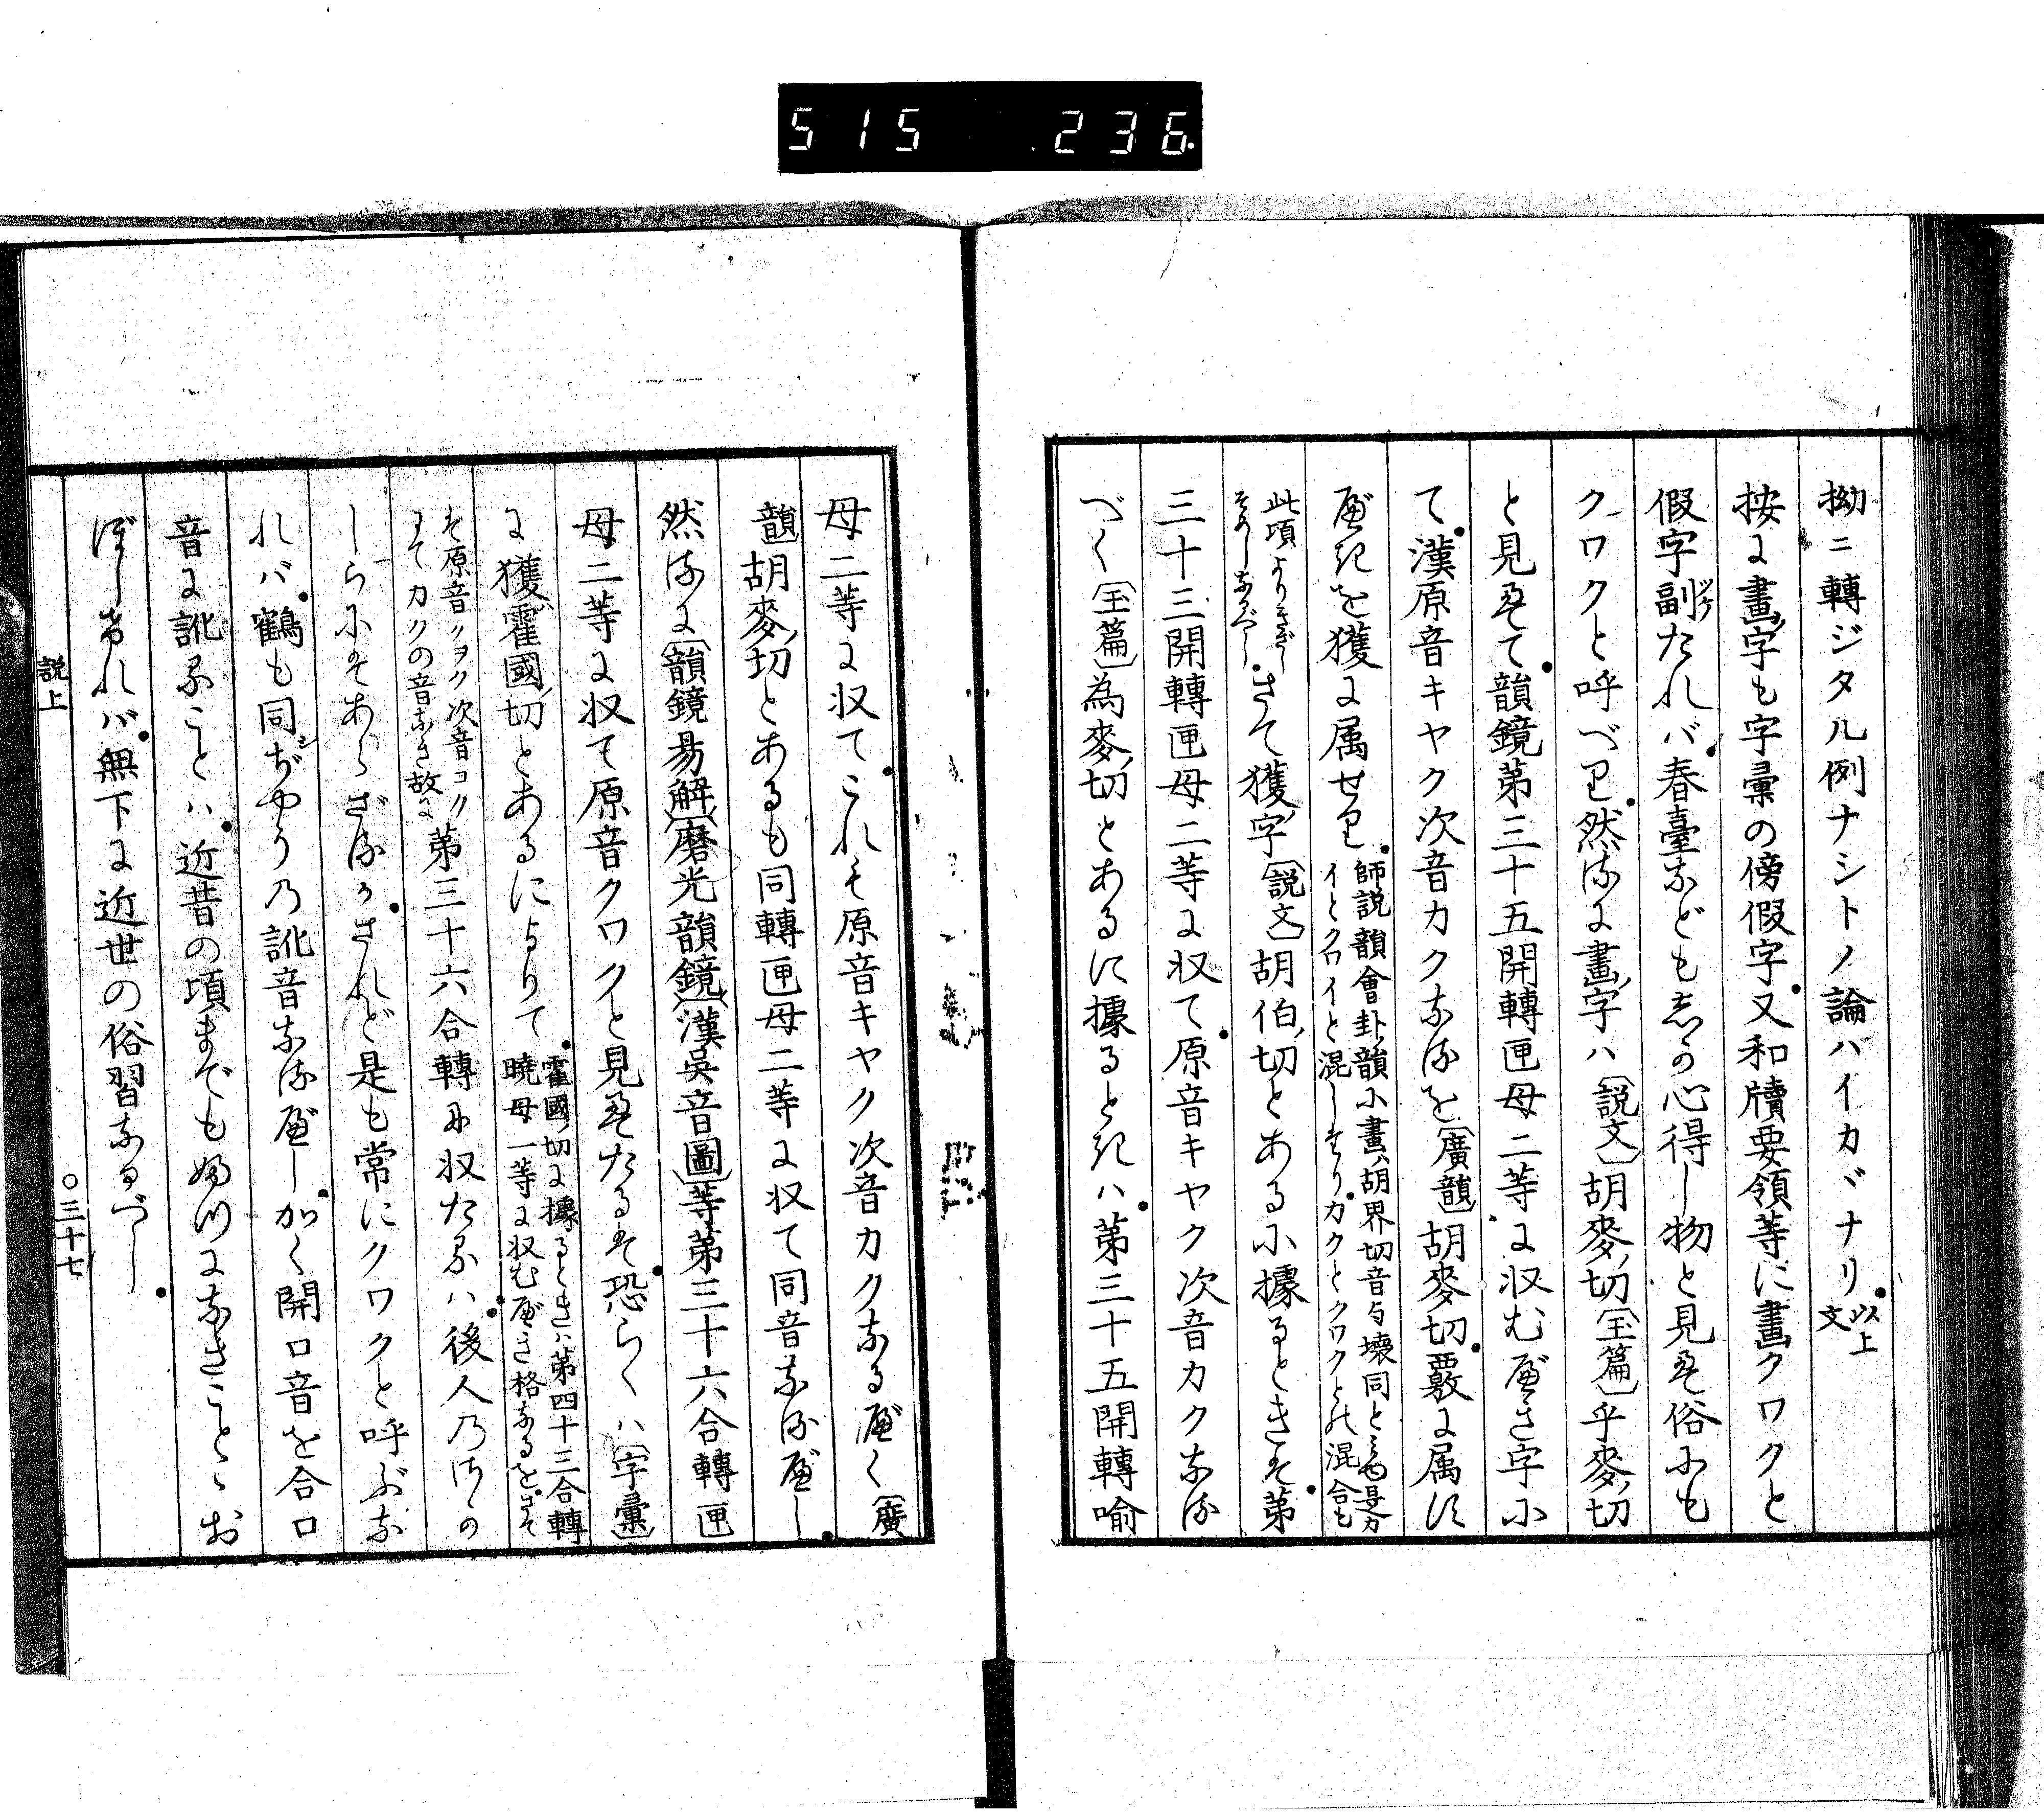 515 236
拗ニ轉ジタル例ナシトノ論ハイカヾナリ以上文
按に畫字も字彙の傍假字又和牘要領等に畫クワクと
假字副たれバ春臺などもしか心得し物と見えて俗にも
クワクと呼べり然るに畫字ハ〔説文〕胡麥切〔玉篇〕乎麥切
と見えて韻鏡第三十五開轉匣母二等に収むべき字に
て漢原音キヤク次音カクなるを〔廣韻〕胡麥切覈に属す
べきを獲に属せり師説韻會卦韻に畫胡界切音与壊同と
イとクワイと混しカクとクワクとの混合も
此頃よりきざし
そめしなるべしさて獲字〔説文〕胡伯切とあるに據るときは第
三十三開轉匣母二等に収て原音キヤク次音カクなる
べく〔玉篇〕為麥切とあるに據るときハ第三十五開轉喩
母二等に収てこれも原音キヤク次音カクなるべく〔廣
韻〕胡麥切とあるも同轉匣母二等に収て同音なるべし
然るに〔韻鏡易解〕〔磨光韻鏡〕〔漢吳音圖〕等第三十六合轉匣
母二等に収て原音クワクと見えたるは恐らくハ〔字彙〕
に獲霍國切とあるによりて霍國切に據るときハ第四十三合轉
曉母一等に収むべき格なるをさて
は原音クヲク次音コク
にてカクの音なき故に第三十六合轉に収たるハ後人のさか
しらにぞあらざるかされど是も常にクワクと呼ぶな
れバ鶴も同ぢやうの訛音なるべしかく開口音を合口
音に訛ることハ近昔の頃までもめつになきことゝお
ぼしければ無下に近世の俗習なるべし
説上
○三十七